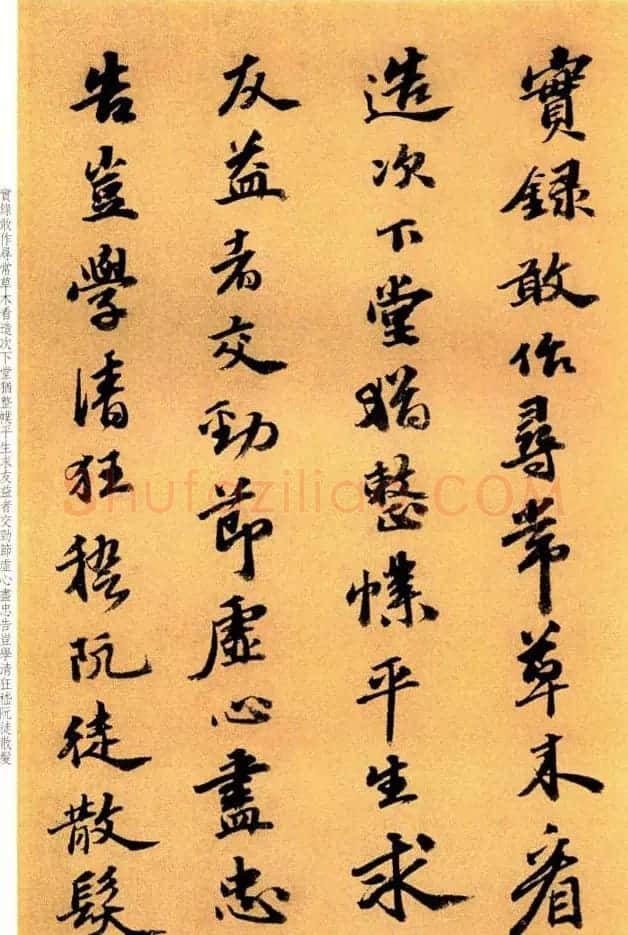 實録敢作尋常草木看
造次下堂猶整幉平生求
友益者交勁節虛心盡忠
告豈學清狂嵇阮徒散髮
實錄敢作尋常草木看造次下堂猶整幉平生求友益者交勁節虛心盡忠告豈學清狂嵇阮徒散髮
Shufaziliao.COM